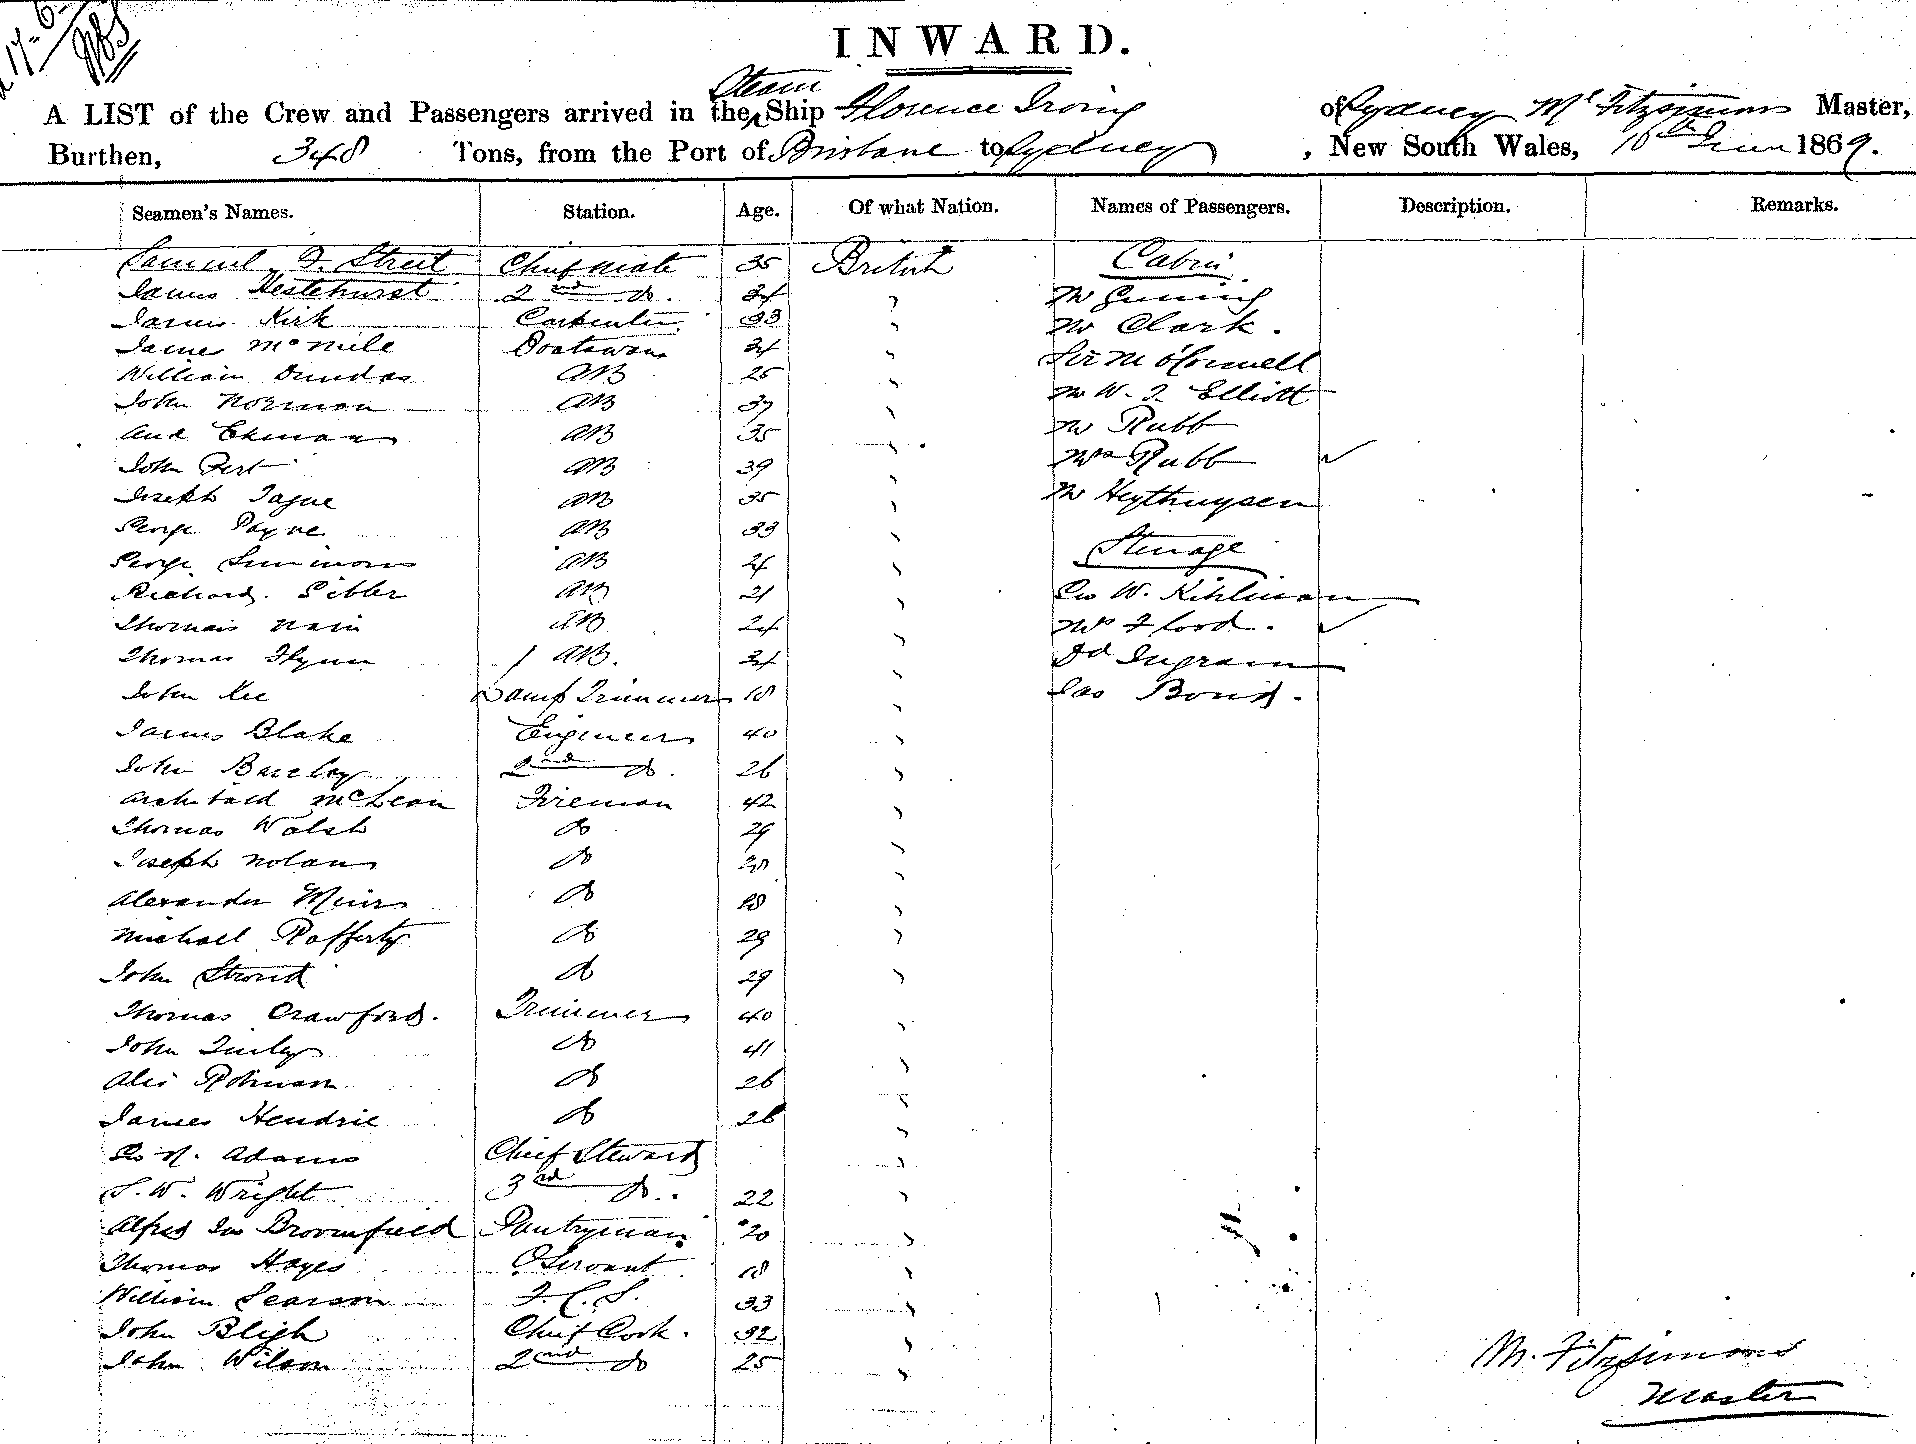 17-6
INWARD.
A LIST of the Crew and Passengers arrived in the Steam Ship Florence Irving of Sydney M Fitzsimons Master,
Burthen, 348 Tons, from the Port of Brisbane to Sydney, New South Wales, 16th June 1869.
Seamen's Names. Station. Age. Of what Nation. Names of Passengers. Description. Remarks.
Samuel J. Street Chief Mate 35 British Cabin
James 2nd Do. 24 " Mr
James Kirk Carpenter 33 " Mr Clark.
James McNeile Boatswain 24 " Sir M O'Connell
William Dundas AB 25 " Mr W. J. Elliott
John Norman AB 37 " Mr Rubb
And Ekman AB 35 " Mrs Rubb ✓
John Pert AB 39 " Mr Heythuysen
Joseph Tague AB 35 "
George Payne AB 33 " Steerage
George Simmons AB 24 "
Richard Sibber AB 21 " Geo W. Kihlman
Thomas Nain AB 24 " Mrs Flood. ✓
Thomas Flynn AB. 24 " Ed Ingram
John Kee Lamp Trimmer 18 " Jas Bond.
James Blake Engineer 40 "
John Barclay 2nd Do. 26 "
Archibald McLean Fireman 42 "
Thomas Walsh Do 29 "
Joseph Nolan Do "
Alexander Muir Do "
Michael Rafferty Do 29 "
John Stroud Do 29 "
Thomas Crawford. Trimmer 40 "
John Turley Do 41 "
Alex Robinson Do 26 "
James Hendrie Do 26 "
Geo N. Adams Chief Steward "
S. W. Wright 3rd Do. 22 "
Alfred Jas Broomfield Pantryman 20 "
Thomas Hayes O Servant 18 "
William Searson F. C. S. 33 "
John Bligh Chief Cook. 32 "
John Wilson 2nd Do 25 "
M. Fitzsimons
Master